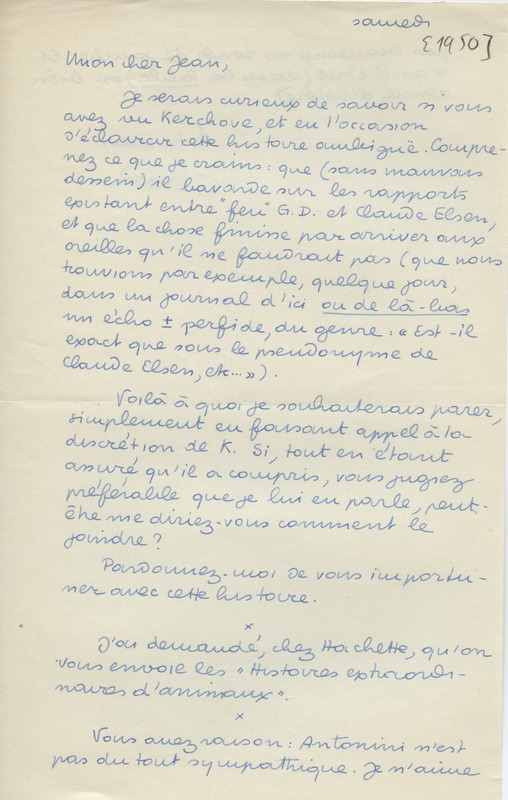 samedi
[1950]
Mon cher Jean,
Je serais curieux de savoir si vous
avez vu Kerchove, et eu l'occasion
d'éclaircir cette histoire ambiguë. Compre-
nez ce que je crains : que (sans mauvais
dessein) il bavarde sur les rapports
existant entre "feu" G.D. et Claude Elsen,
et que la chose finisse par arriver aux
oreilles qu'il ne faudrait pas (que nous
trouvions par exemple, quelque jour,
dans un journal d'ici ou de là-bas
un écho ± perfide, du genre : « Est-il
exact que sous le pseudonyme de
Claude Elsen, etc... »).
Voilà à quoi je souhaiterais parer,
simplement en faisant appel à la
discrétion de K. Si, tout en étant
assuré qu'il a compris, vous jugiez
préférable que je lui en parle, peut-
être me diriez-vous comment le
joindre ?
Pardonnez-moi de vous importu-
ner avec cette histoire.
x
J'ai demandé, chez Hachette, qu'on
vous envoie les "Histoires extraordi-
naires d'animaux".
x
Vous avez raison : Antonini n'est
pas du tout sympathique. Je n'aime